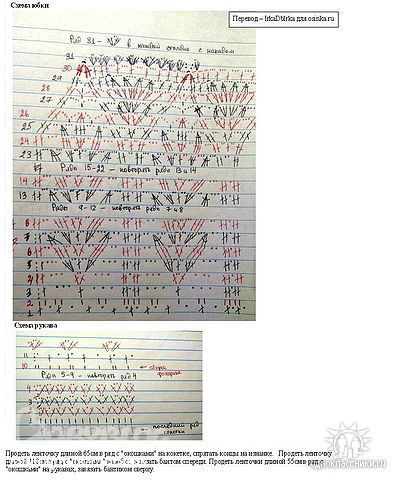 Схема юбки
Перевод – IrkaDbIrka для osinka.ru
Ряд 31 - в каждый столбик с накидом
31
30
29
28
27
26
25
24
23
Ряды 15-22 - повторять ряды 13 и 14
14
13
Ряды 9-12 - повторять ряды 7 и 8
8
7
6
5
4
3
2
1
Схема рукава
11
10
Ряды 5-9 - повторять ряд 4
4
3
2
1
последний ряд кокетки
Продеть ленточку длиной 65см в ряд с "окошками" на кокетке, спрятать концы на изнанке. Продеть ленточку
бантом спереди. Продеть ленточки длиной 55см в ряд с
"окошками" на рукавах, завязать бантиком сверху.